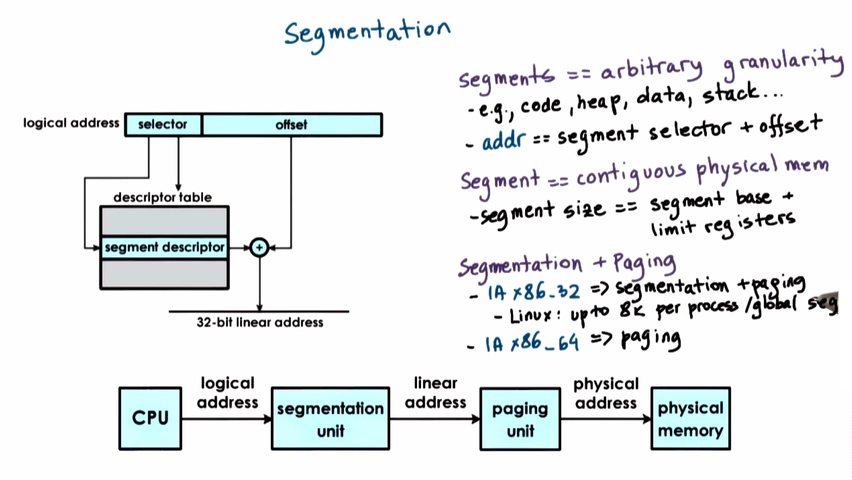 Segmentation
logical address
selector
offset
descriptor table
segment descriptor
+
32-bit linear address
segments == arbitrary granularity
- e.g., code, heap, data, stack...
- addr == segment selector + offset
Segment == contiguous physical mem
- segment size == segment base +
limit registers
Segmentation + Paging
- IA x86_32 => segmentation + paging
- Linux: up to 8K per process / global seg
- IA x86_64 => paging
CPU
logical
address
segmentation
unit
linear
address
paging
unit
physical
address
physical
memory